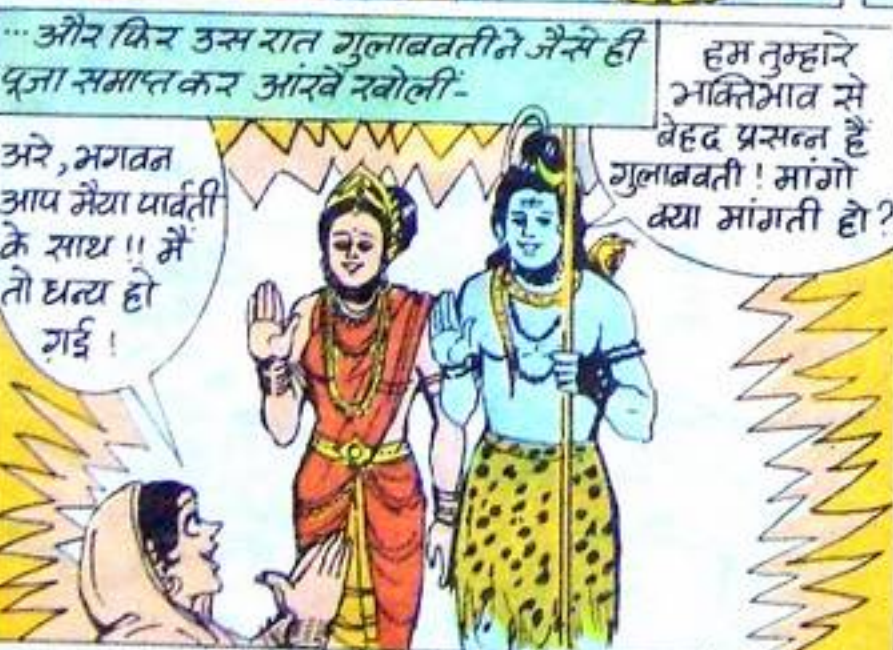 ...और फिर उस रात गुलाबवतीने जैसे ही
पूजा समाप्त कर आंखें खोलीं-
अरे, भगवन
आप मैया पार्वती
के साथ !! मैं
तो धन्य हो
गई !
हम तुम्हारे
भक्तिभाव से
बेहद प्रसन्न हैं
गुलाबवती ! मांगो
क्या मांगती हो ?